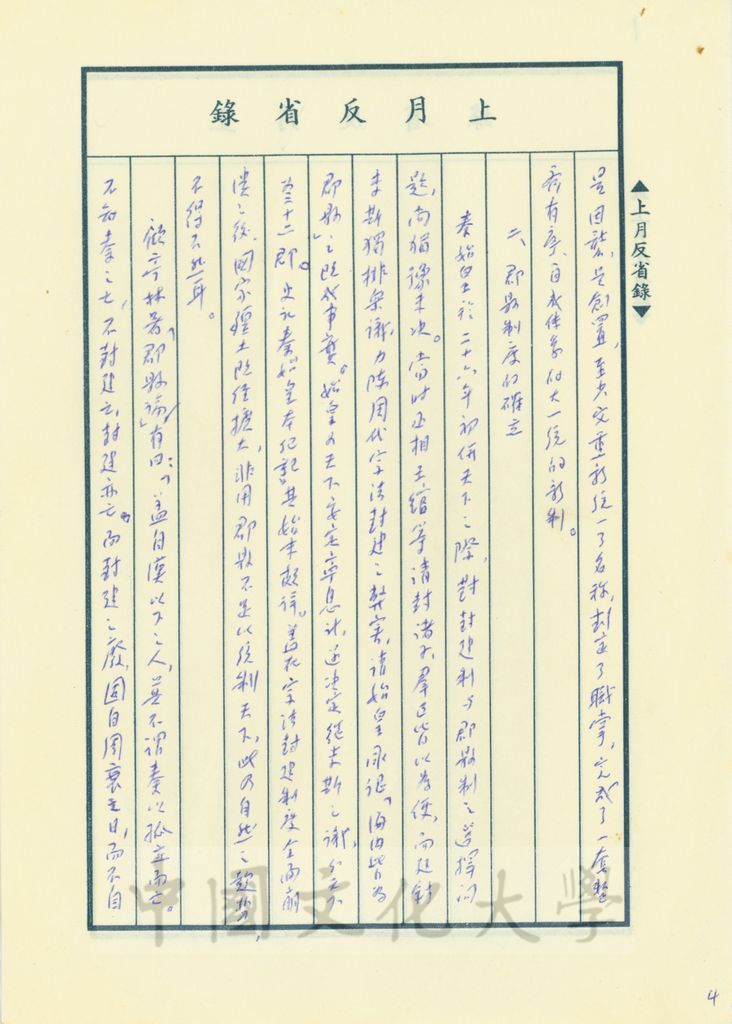 上月反省錄
▲上月反省錄▼
是因襲,是創置,至少又重新統一了名称,封定了職掌,完成了一套整
齊有序、自成体系的大一統的新制。
二、郡縣制度的確立
秦始皇於二十六年初併天下之際,對封建制与郡縣制之選擇问
題,尚猶豫未決。當时丞相王綰等请封诸子,群臣皆以为便,而廷尉
李斯獨排眾議,力陈周代宗法封建之弊害,请始皇承認「海内皆为
郡縣」之既成事實。始皇为天下安定寧息计,遂決定從李斯之議,分天下
为三十二郡。史记秦始皇本纪記其始末頗詳。蓋在宗法封建制度全面崩
潰之後,國家疆土既经擴大,非用郡縣不足以統制天下,此乃自然之趨勢,
不得不然耳。
顧亭林著「郡縣論」有曰:「蓋自漢以下之人,莫不谓秦以孤立而亡。
不知秦之亡,不封建亡,封建亦亡。而封建之廢,固自周衰之日,而不自
中國文化大學
4